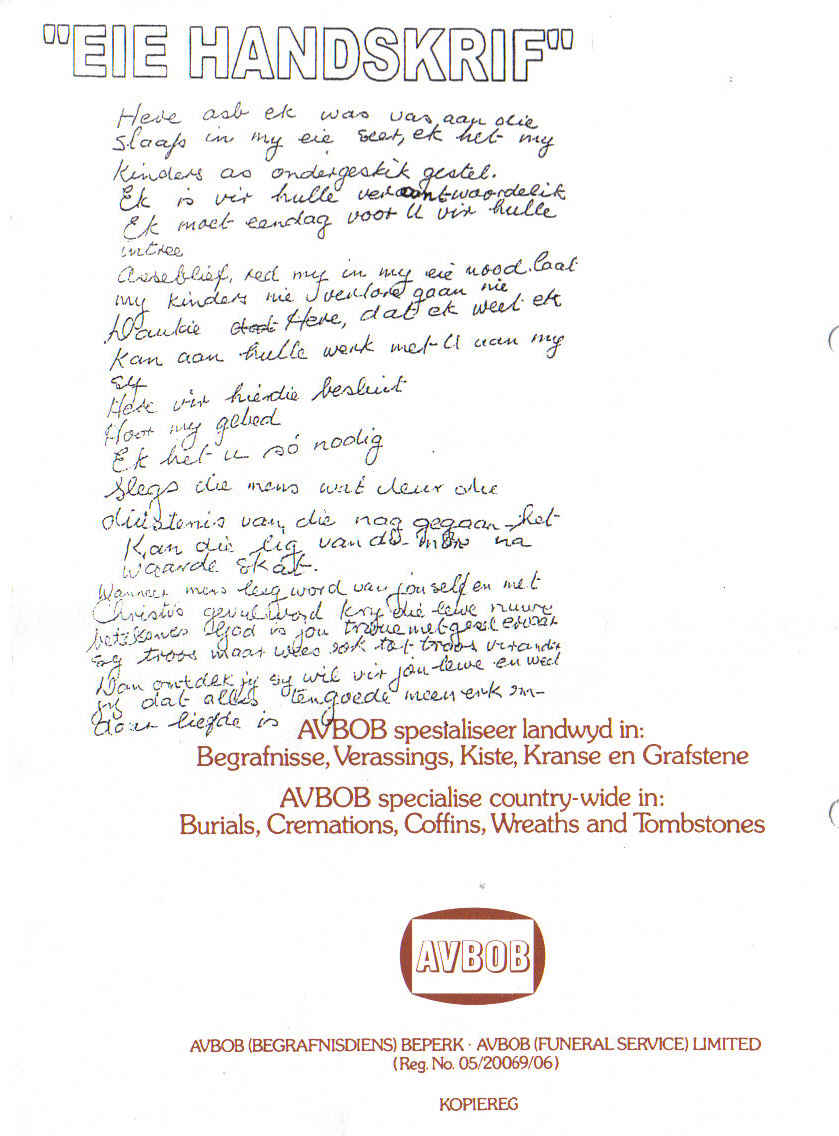 "EIE HANDSKRIF"
Here asb ek was vas aan die
slaap in my eie seer, ek het my
kinders as ondergeskik gestel.
Ek is vir hulle verantwoordelik
Ek moet eendag voor U vir hulle
intree
Asseblief, red my in my eie nood. laat
my kinders nie verlore gaan nie
Dankie Here, dat ek weet ek
kan aan hulle werk met U aan my
sy
Here vir hierdie besluit
Hoor my gebed
Ek het u só nodig
Slegs die mens wat deur die
duisternis van die nag gegaan het
Kan die lig van die môre na
waarde skat.
Wanneer mens leeg word van jouself en met
Christus gevul word kry die lewe nuwe
betekenis God is jou troue metgesel ervaar
sy troos maar wees ook tot troos vir ander
Dan ontdek jy sy wil vir jou lewe en weet
jy dat alles tengoede meewerk om-
daar liefde is
AVBOB spesialiseer landwyd in:
Begrafnisse, Verassings, Kiste, Kranse en Grafstene
AVBOB specialise country-wide in:
Burials, Cremations, Coffins, Wreaths and Tombstones
AVBOB
AVBOB (BEGRAFNISDIENS) BEPERK · AVBOB (FUNERAL SERVICE) LIMITED
(Reg. No. 05/20069/06)
KOPIEREG